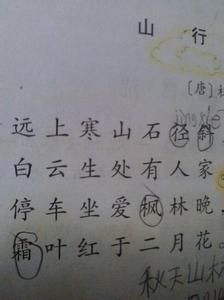 山 行
〔唐〕
远上寒山石径斜
白云生处有人家
停车坐爱枫林晚，
霜叶红于二月花。
秋天山林